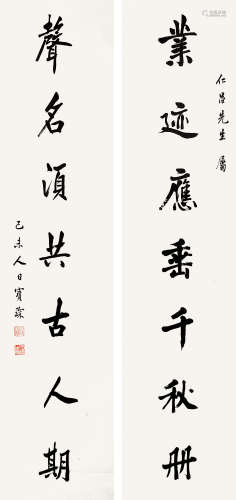 仁昌先生屬
業迹應垂千秋册
聲名須共古人期
己未人日寶琛